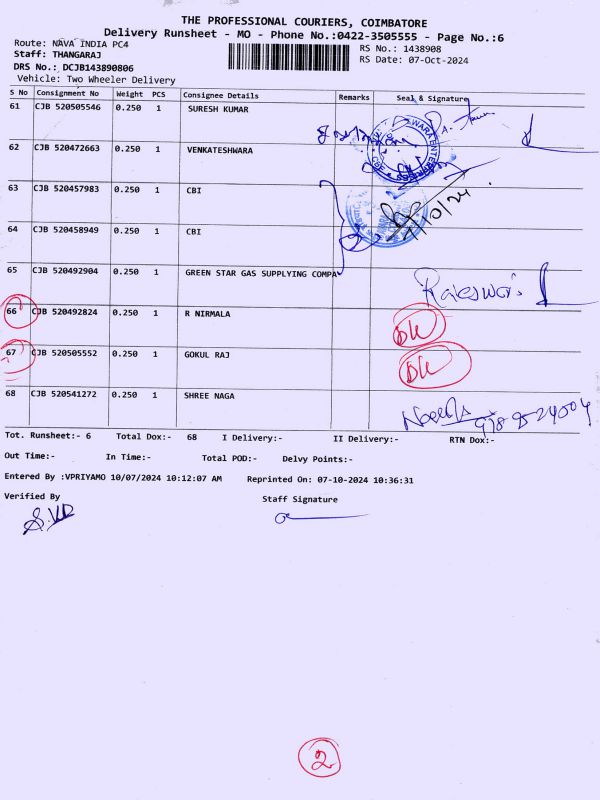 THE PROFESSIONAL COURIERS, COIMBATORE
Delivery Runsheet - MO - Phone No.:0422-3505555 - Page No.:6
Route: NAVA INDIA PC4
Staff: THANGARAJ
DRS No.: DCJB143890806
Vehicle: Two Wheeler Delivery
RS No.: 1438908
RS Date: 07-Oct-2024
S No Consignment No Weight PCS Consignee Details Remarks Seal & Signature
61 CJB 520505546 0.250 1 SURESH KUMAR
62 CJB 520472663 0.250 1 VENKATESHWARA
63 CJB 520457983 0.250 1 CBI
64 CJB 520458949 0.250 1 CBI
65 CJB 520492904 0.250 1 GREEN STAR GAS SUPPLYING COMPA
66 CJB 520492824 0.250 1 R NIRMALA DL
67 CJB 520505552 0.250 1 GOKUL RAJ DL
68 CJB 520541272 0.250 1 SHREE NAGA
Tot. Runsheet:- 6 Total Dox:- 68 I Delivery:- II Delivery:- RTN Dox:-
Out Time:- In Time:- Total POD:- Delvy Points:-
Entered By :VPRIYAMO 10/07/2024 10:12:07 AM Reprinted On: 07-10-2024 10:36:31
Verified By Staff Signature
2